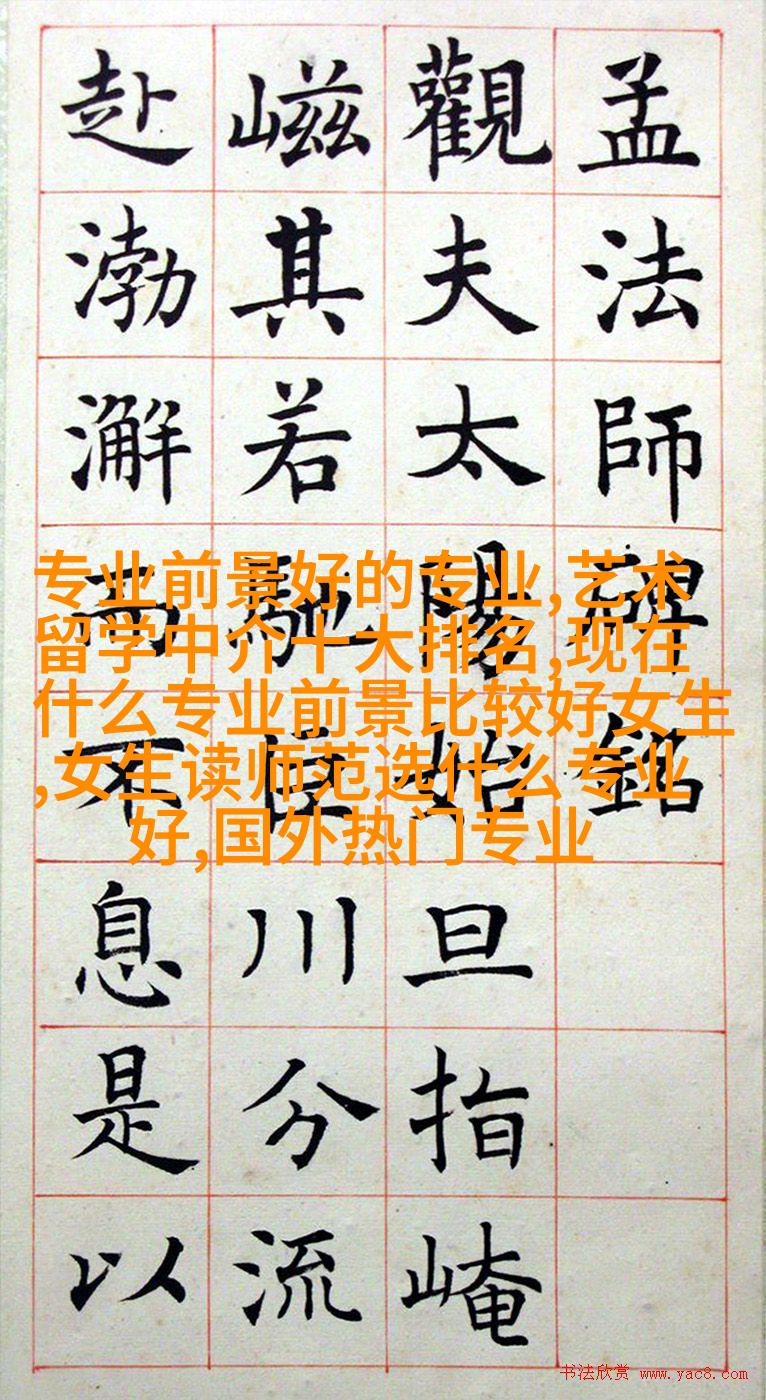 孟法師碑銘
觀夫太陽始旦指崦
嵫其若馳川分流
赴渤澥而不息是以
专业前景好的专业,艺术
留学中介十大排名,现在
什么专业前景比较好女生
,女生读师范选什么专业
好,国外热门专业
书法欣赏 www.yac8.com